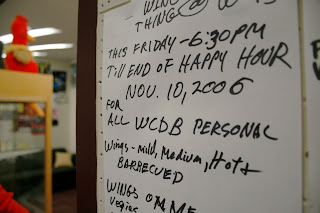 WING
THING @
THIS FRIDAY - 6:30PM
Till END OF HAPPY HOUR
NOV. 10, 2006
FOR
ALL WCDB PERSONAL
Wings - Mild, Medium, Hot &
BARBECUED
WINGS ON ME
Vegies